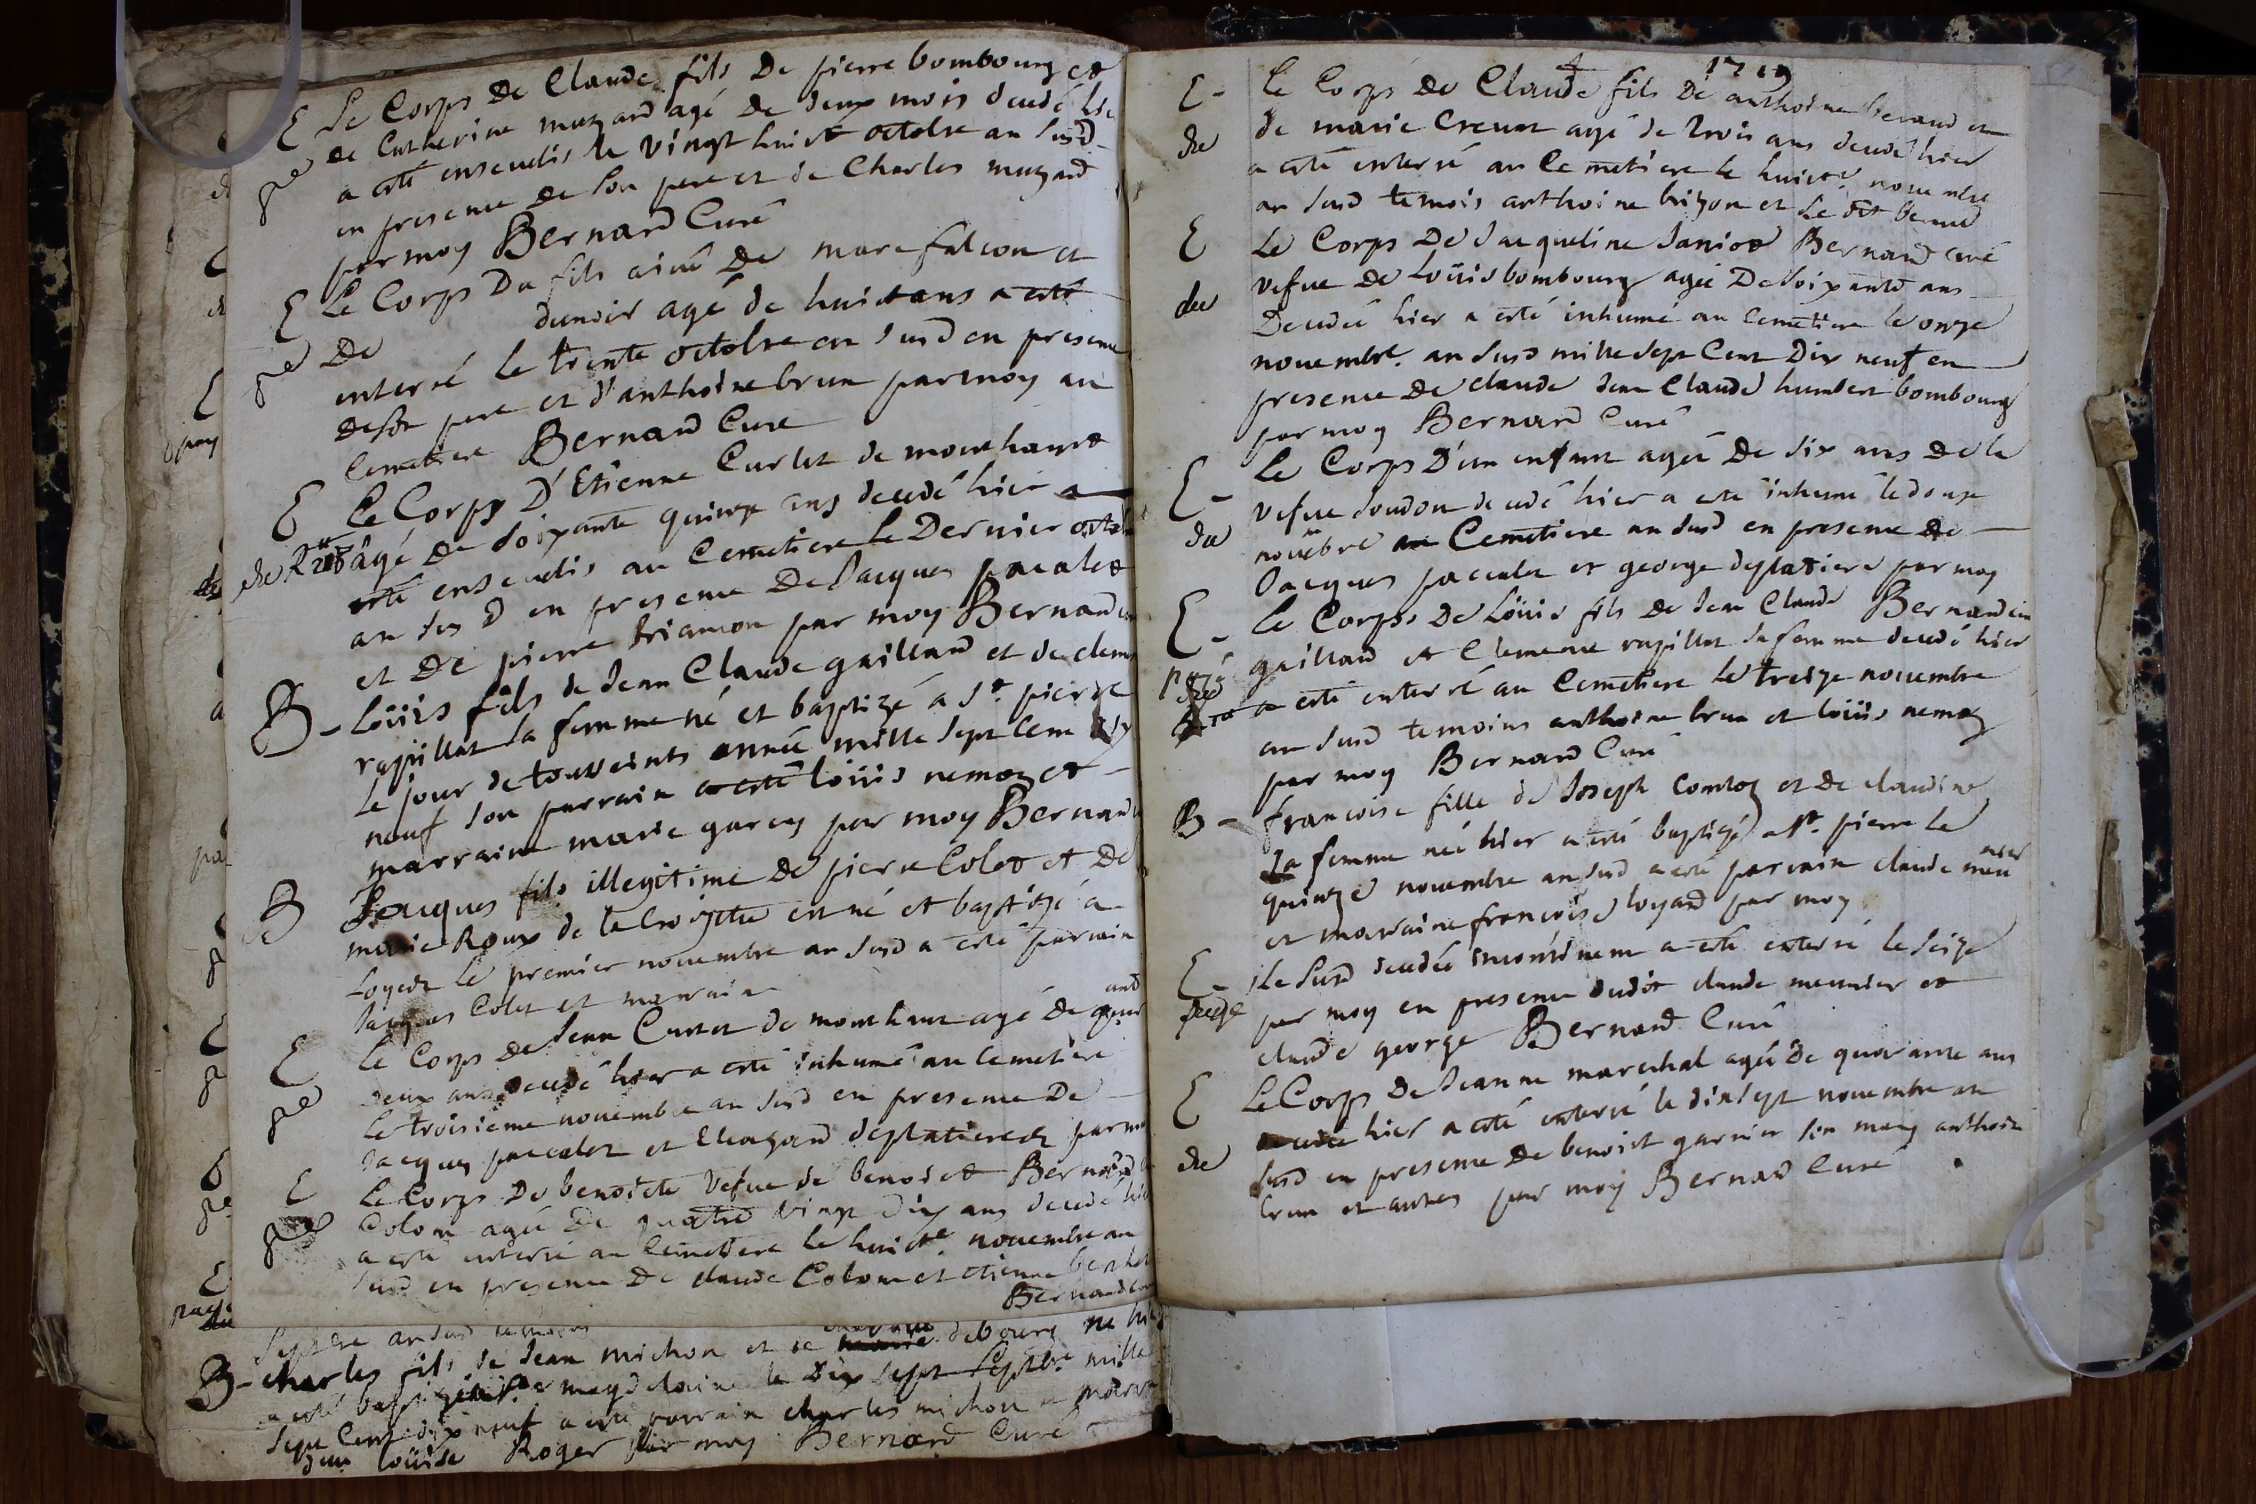 E Le Corps De Claude fils De pierre bombourg et
de Catherine muzard agé De deux mois decedé hier
a esté ensevelis le vingt huict octobre an susd
en presence De son pere et de Charles muzard
par moy Bernard Curé
E Le Corps Du fils ainé De marc falcon et
De dunoir agé de huict ans a esté
enterré le trente octobre an susd en presence
desdt pere et d'anthoine brun par moy au
Cemetiere Bernard Cure
E Le Corps D'Etienne Curlet de monthaut
âgé De soixante quinze ans decedé hier a
esté ensevelis au Cemetiere Le Dernier octob
an susd en presence De Jacques pacalet
et De pierre briancon par moy Bernard
B - Loüis fils de Jean Claude gaillard et de clem
rapillat sa femme né et baptizé a St. pierre
le jour de toussaints année mille sept Cent dix
neuf son parrain a esté loüis nemoz et
marraine marie garcy par moy Bernard
B Jacques fils illegitime De pierre Colet et De
marie Roux de la Croisette est né et baptizé a
Loyedt le premier novembre an susd a esté parrain
Jacques Colet et marraine
E Le Corps de Jean Curtet de monthaut agé De quar
ante
deux ans decedé hier a esté inhumé au Cemetiere
Le troisieme novembre an susd en presence De
Jacques paccalet et Eleazard deplatiere par m
E Le Corps De benoiete vefve de benoiet Bernard
Colom agée De quatre vingt Dix ans decedé hie
a esté enterré au Cemetiere le huicte novembre an
susd en presence De claude Colom et etienne
Bernard
septbre an susd temoins
B - charles fils de Jean michon et de debourg né hi
a esté baptizé magdelaine le Dix sept septbre mille
sept Cent dix neuf a esté parrain charles michon et marra
loüise Roger par moy Bernard Curé
1719
E - Le Corps De Claude fils De anthoine beraud et
de marie Creuat agé de trois ans decedé hier
a esté enterré au Cemetiere le huicte novembre
an susd temois anthoine brizon et Le dit beraud
E Le Corps De Jacqueline Janiot Bernard curé
vefve De Loüis bombourg agée De soixante ans
Decedée hier a esté inhumé au Cemetiere le onze
novembre. an susd mille sept Cent Dix neuf en
presence De claude Jean Claude humbert bombourg
par moy Bernard Curé
E - Le Corps D'un enfant agée De six ans De la
vefve doudon decedé hier a esté inhumé le douze
novẽbre au Cemetiere an susd en presence De
Jacques paccalet et george deplatiere par moy
E - Le Corps De Loüis fils De Jean Claude Bernard cu
gaillard et Clemence rapillat sa femme decedé hier
a esté enterré au Cemetiere Le treize novembre
an susd temoins anthoine brun et loüis nemoz
par moy Bernard Curé
B - francoise fille de Joseph Comtoz et De claudine
sa femme née hier a esté baptizé a St. pierre Le
quinze novembre an susd a esté parrain claude meu
nier
et marraine francoise loyard par moy
E - Le susd decedée incontinent a esté enterré le seize
par moy en presence dudit claude meunier et
claude george Bernard Curé
E Le Corps De Jeanne marechal agée De quarante ans
decedée hier a esté enterré le dixsept novembre an
susd en presence De benoict garnier son mary anthoin
brun et autres par moy Bernard Curé